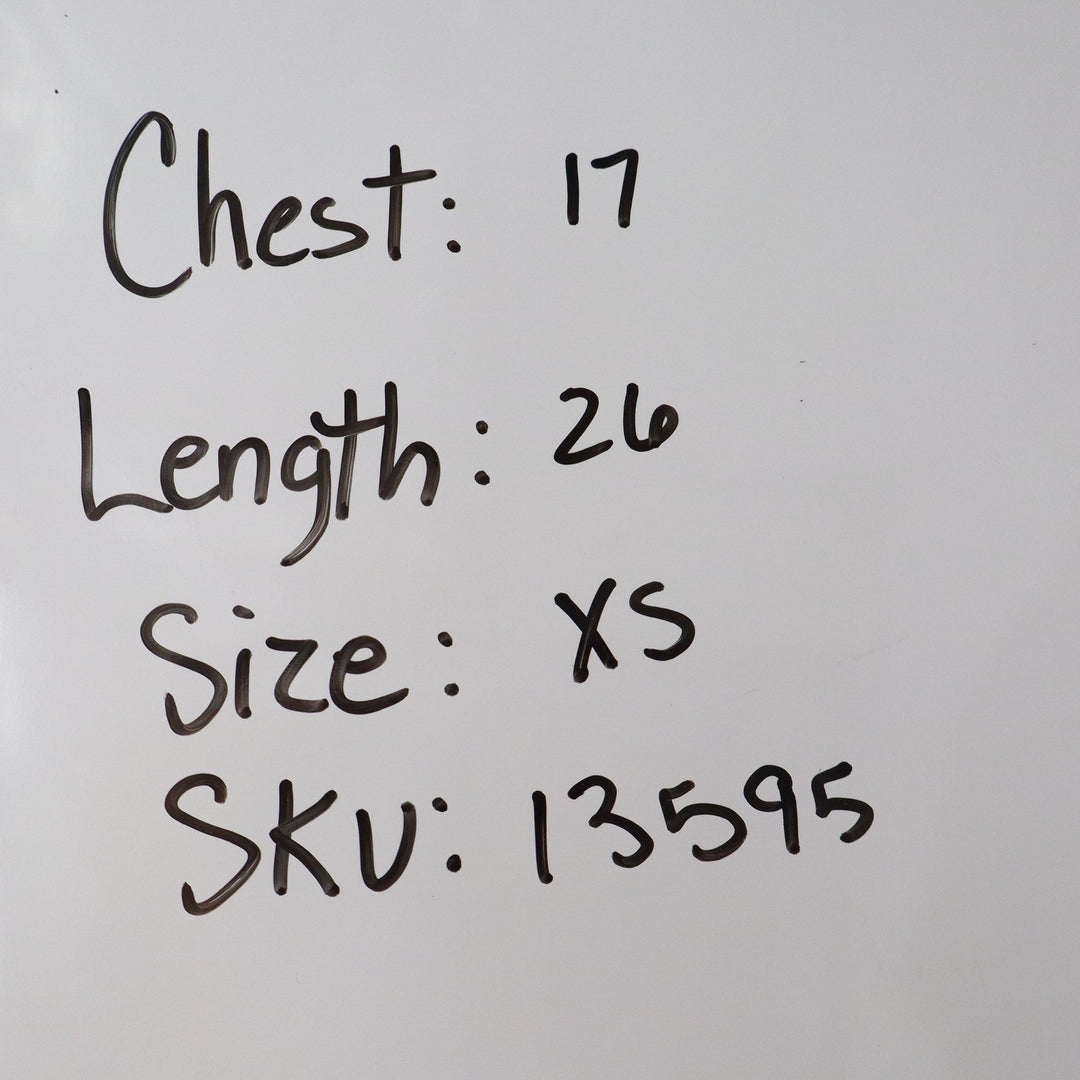 Chest: 17
Length: 26
Size: XS
SKU: 13595